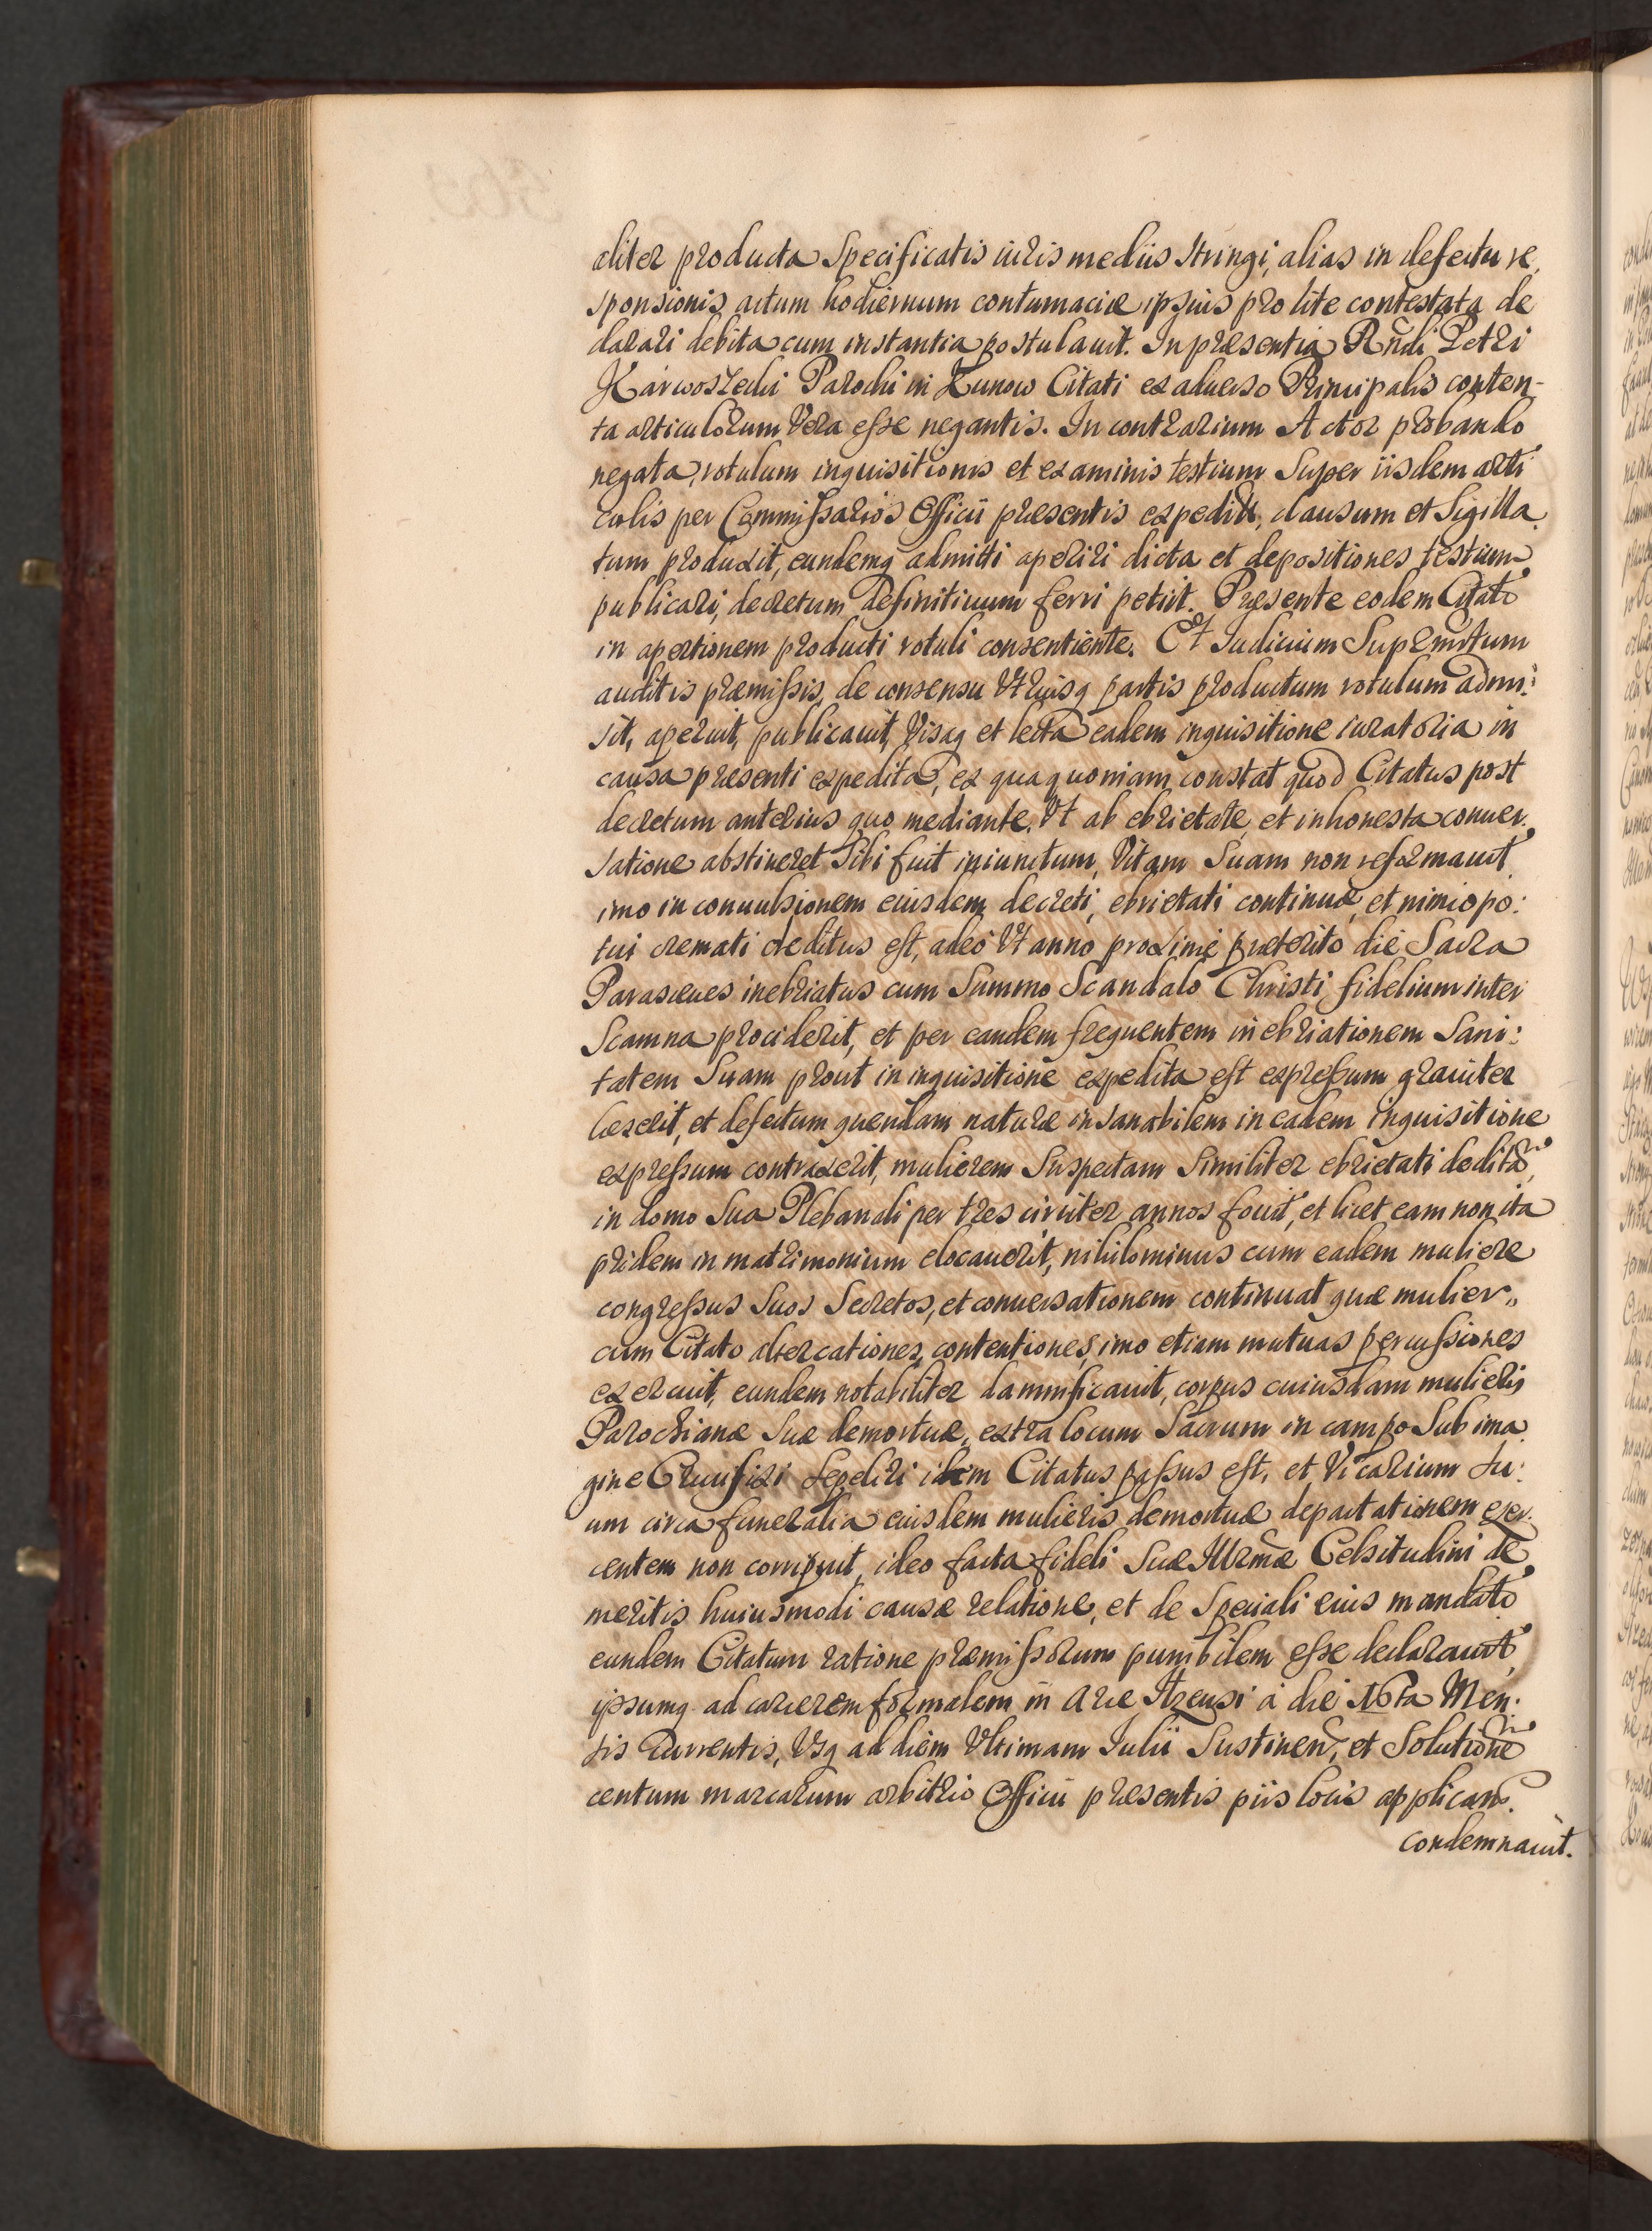 aliter producta Specificatis iuris mediis stringi, alias in defectu re,
sponsionis actum hodiernum contumaciæ ipsius pro lite contestata de
clarari debita cum instantia postulauit. In præsentia Rñdi Petri
Karwosiecki Parochi in Zunow Citati ex aduerso Principalis conten-
ta articulorum Vera esse negantis. In contrarium Actor probando
negata, rotulum inquisitionis et examinis testium Super iisdem arti
culis per Commissarios Officii præsentis expedit, clausum et Sigilla
tum produxit, eundemq̃ admitti aperiri dicta et depositiones testium
publicari, decretum definitiuum ferri petiit. Præsente eodem Citato
in apertionem producti rotuli consentiente. Et Iudicium Supremũtum
auditis præmissis, de consensu Vtriusq partis productum rotulum admi:
sit, aperuit, publicauit, Visaq et lecta eadem inquisitione iuratoria in
causa præsenti expedita, ex qua quoniam constat quod Citatus post
decretum anterius quo mediante, Vt ab ebrietate et inhonesta conuer
satione abstineret Sibi fuit iniunctum, Vitam Suam non reformauit
imo in conuulsionem eiusdem decreti, ebrietati continuæ, et nimio po:
tui cremati deditus est, adeo Vt anno proxime præterito die Sacra
Parasceues inebriatus cum Summo Scandalo Christi fidelium inter
Scamna prociderit, et per eandem frequentem inebriationem Sani:
tatem Suam prout in inquisitione expedita est expressum grauiter
læserit, et defectum quendam naturæ insanabilem in eadem inquisitione
expressum contraxerit, mulierem Suspectam Similiter ebrietati dedità,
in domo Sua Plebanali per tres circiter annos fouit, et licet eam non ita
pridem in matrimonium elocauerit, nihilominus cum eadem muliere
congressus Suos Secretos, et conuersationem continuat quæ mulier,,
cum Citato altercationes, contentiones, imo etiam mutuas percussiones
exercuit, eundem notabiliter damnificauit, corpus cuiusdam mulieris
Parochianæ Suæ demortuæ, extra locum Sacrum in campo Sub ima
gine Crucifixi Sepeliri idem Citatus passus est, et Vicarium Su:
um circa funeralia eiusdem mulieris demortuæ depactationem exer
centem non corripuit, ideo facta fideli Suæ Illrmæ Celsitudini de
meritis huiusmodi causæ relatione, et de Speciali eius mandato
eundem Citatum ratione præmissorum punibilem esse declarauit,
ipsumq ad carcerem formalem in Arce Ilzensi à die 16ta Men:
sis Currentis, Vsq ad diem Vltimam Iulii Sustinen, et Solutione
centum marcarum arbitrio Officii præsentis piis locis applican.
condemnauit.